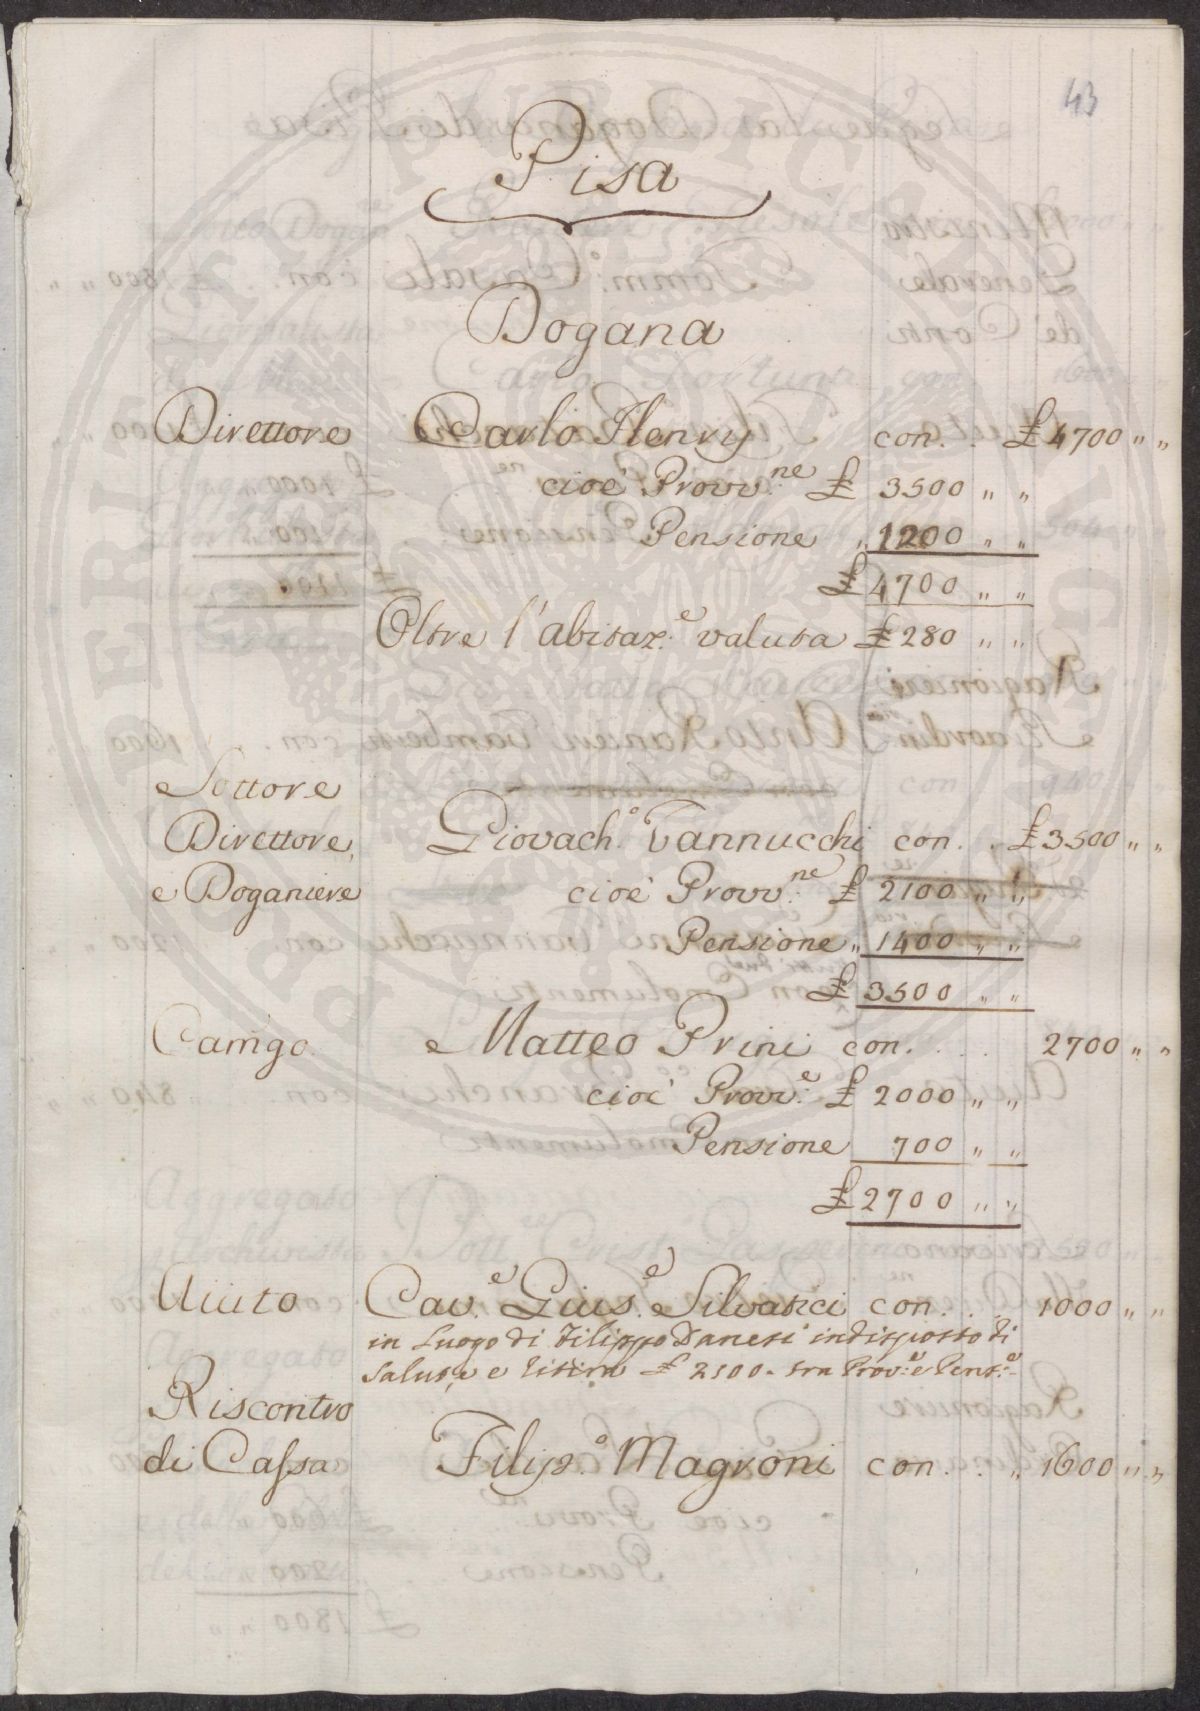 43
Pisa
Dogana
Direttore Carlo Henry con. . £ 4700 " "
cioè Provv.ne £ 3500 " "
Pensione " 1200 " "
£ 4700 " "
Oltre l'abitaz.e valuta £ 280 " "
Sottore
Direttore, Giovach.o Vannucchi con. . £ 3500 " "
e Doganiere cioè Provv.ne £ 2100 " "
Pensione " 1400 " "
£ 3500 " "
Camgo. Matteo Prini con. . . . 2700 " "
cioè Provv.e £ 2000 " "
Pensione 700 " "
£ 2700 " "
Aiuto Cav.e Gius.e Silvatici con. . . 1000 " "
in luogo di Filippo Danesi indisposto di
salute, e ritira £ 2100. tra Prov.e e Pens.e
Riscontro
di Cassa Filip.o Magroni con. . " 1600 " "